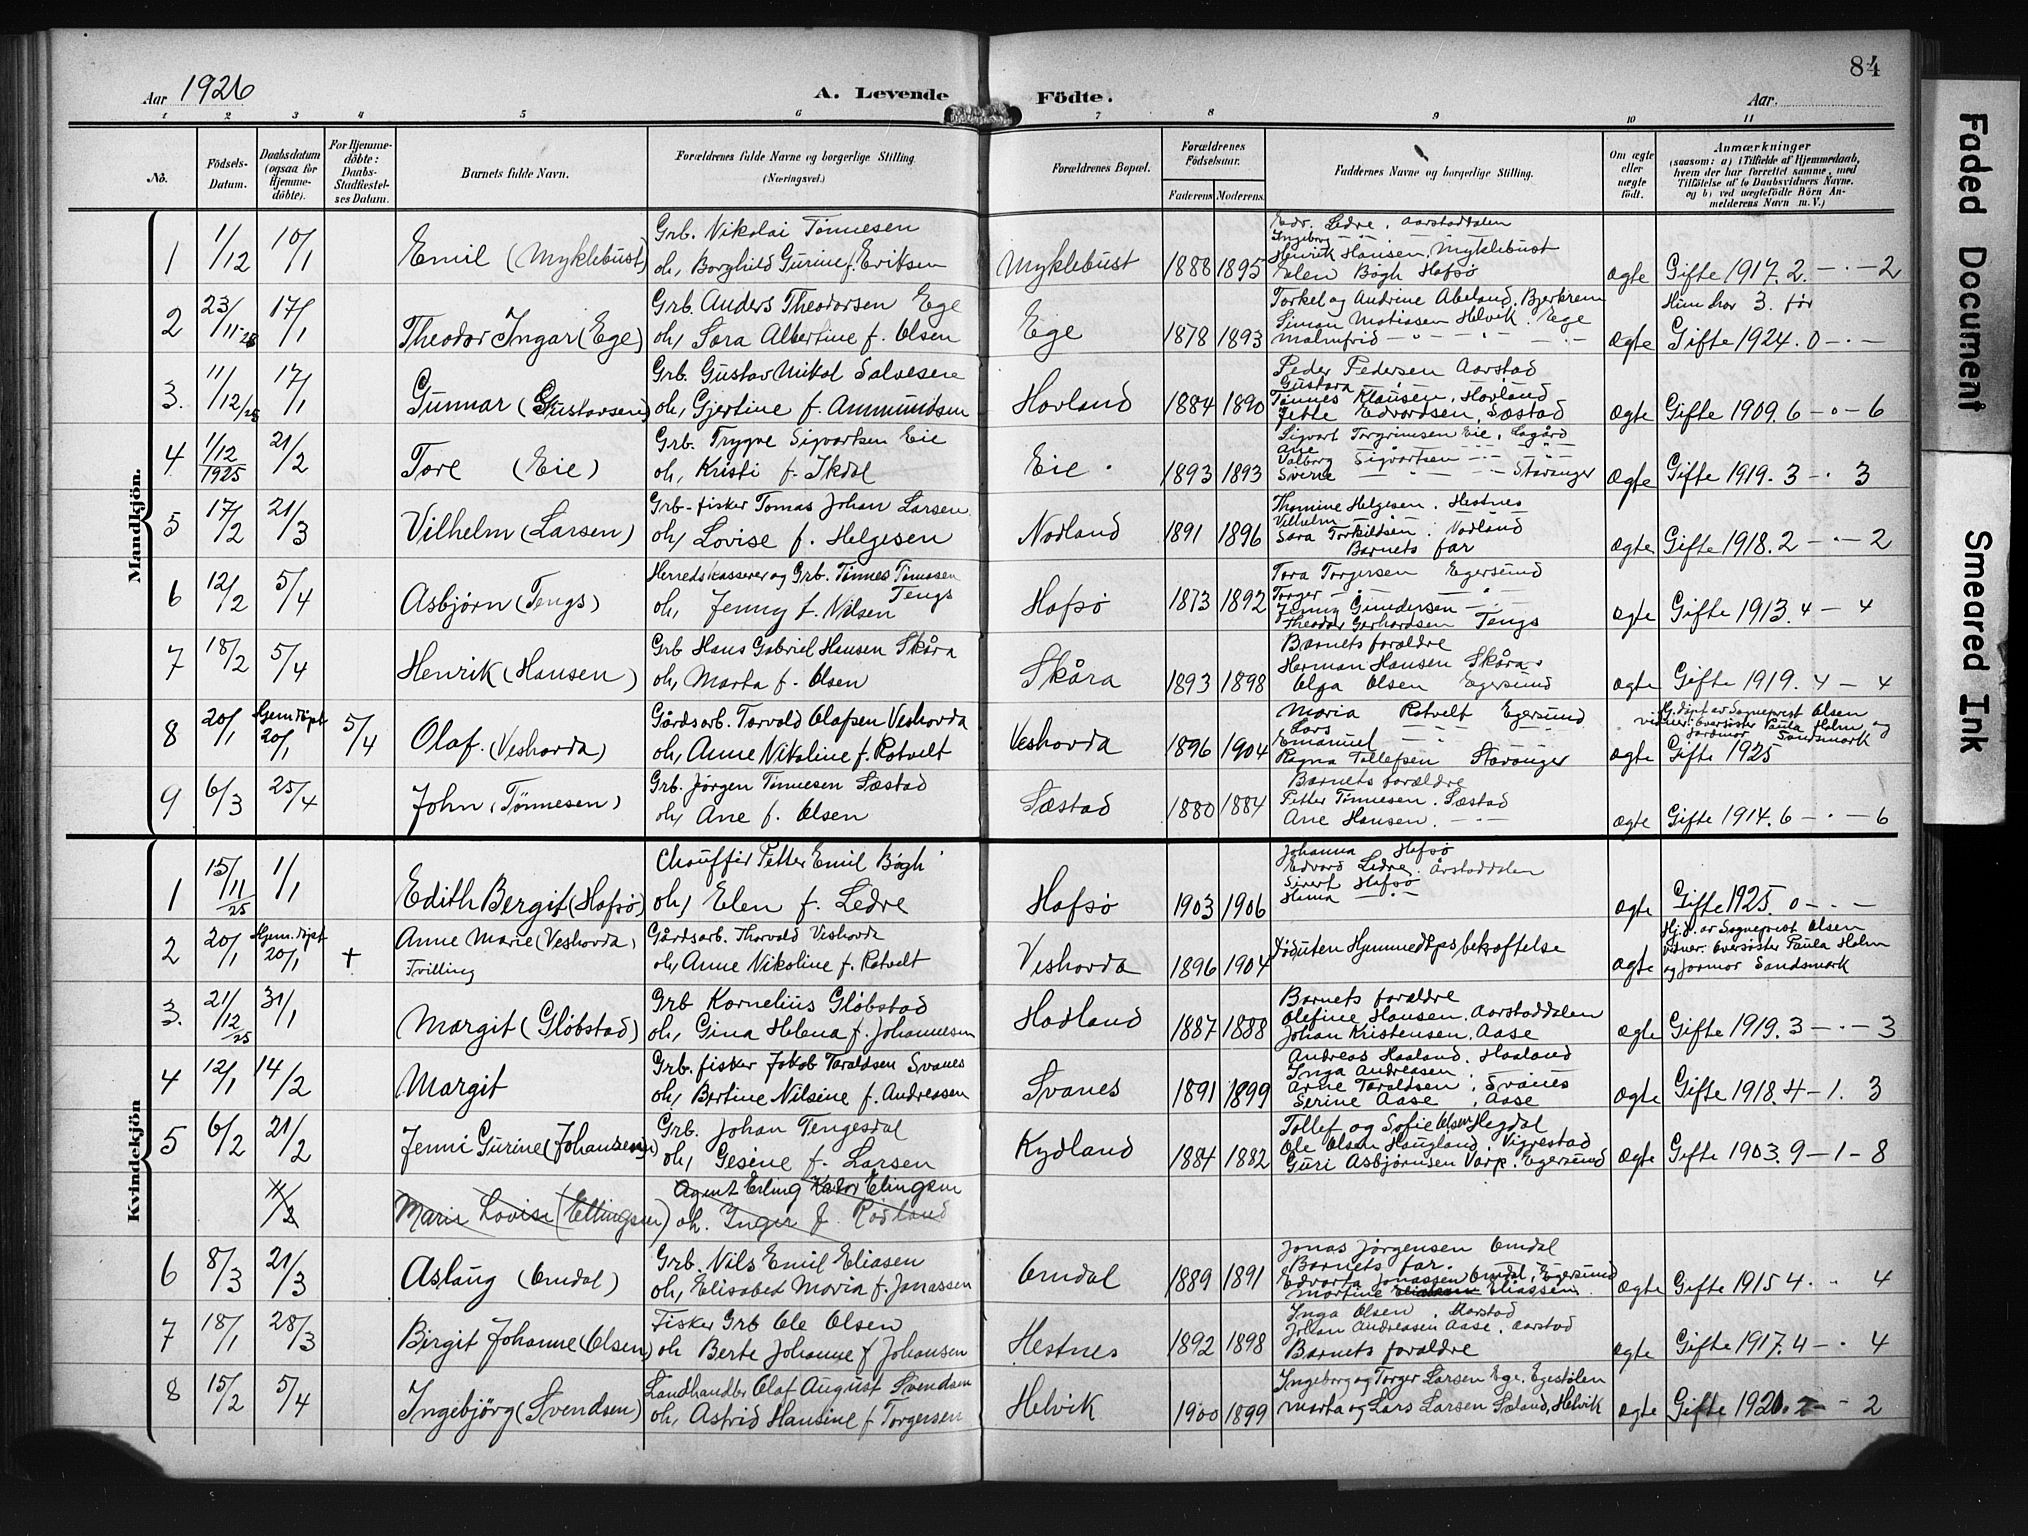 84
Aar 1926
A. Levende Födte.
Aar.
1 2 3 4 5 6 7 8 9 10 11
No.
Födsels-Datum.
Daabsdatum (ogsaa for Hjemmedöbte).
For Hjemmedöbte: Daabs-Stadfæstelses Datum.
Barnets fulde Navn.
Forældrenes fulde Navne og borgerlige Stilling. (Næringsvei.)
Forældrenes Bopæl.
Forældrenes Födselsaar.
Faderens Moderens
Faddernes Navne og borgerlige Stilling.
Om ægte eller uægte födt.
Anmærkninger
(saasom: a) i Tilfælde af Hjemmedaab, hvem der har forrettet samme, med Tilföielse af to Daabsvidners Navne, og b) ved uægtefödte Börn Anmelderens Navn m. V.)
Mandkjön.
1 1/12 10/1 Emil (Myklebust)
Grb. Nikolai Tönnesen
oh, Borghild Gurine f. Eriksen
Myklebust 1888 1895
Edv. Ledre, Aarstaddalen
Ingeborg
Henrik Hansen, Myklebust
Elen Bögh Hofsö
ægte Gifte 1917. 2 - · - 2
2 23/11-25 17/1 Theodor Ingar (Ege)
Grb. Anders Theodorsen Ege
oh, Sara Albertine f. Olsen
Ege 1878 1893
Torkel og Andrine Abeland, Bjerkrem
Simon Matiasen Helvik. Ege
Malmfrid
ægte Hun har 3. før
Gifte 1924. 0 - · -
3. 11/12/25 17/1 Gunnar (Gustavsen)
Grb. Gustav Mikal Salvesen
oh, Gjertine f. Ammundsen
Hovland 1884 1890
Peder Pedersen Aarstad
Gustava
Tönnes Klausen, Hovland
Jette Edvardsen, Sæstad
ægte Gifte 1909. 6 - 0 - 6
4 1/12 1925 21/2 Tore (Eie)
Grb. Trygve Sigvartsen Eie
oh, Kristi f. Ikdal
Eie 1893 1893
Sigvart Torgrimsen Eie, Lagård
Ane
Valborg Sigvartsen
Sverre Stavanger
ægte Gifte 1919. 3 - · 3
5 17/2 21/3 Vilhelm (Larsen)
Grb- fisker Tomas Johan Larsen
oh, Lovise f. Helgesen
Nodland 1891 1896
Thomine Helgesen, Hestnes
Vilhelm
Sara Torkildsen, Nodland
Barnets far
ægte Gifte 1918. 2 - · - 2
6 12/2 5/4 Asbjørn (Tengs)
Herredskasserer og Grb. Tönnes Tönnesen Tengs
oh, Jenny f. Nilsen
Hofsö 1873 1892
Tora Torgersen Egersund
Torger
Jenny Gundersen
Theodor Gerhardsen Tengs
ægte Gifte 1913. 4 - 4
7 18/2 5/4 Henrik (Hansen)
Grb Hans Gabriel Hansen Skåra
oh, Marta f. Olsen
Skåra 1893 1898
Barnets forældre
Herman Hansen Skåra
Olga Olsen Egersund
ægte Gifte 1919. 4 - 4
8 20/1 Hjem.döpt 20/1 5/4 Olaf. (Veshovda)
Gårdsarb. Torvald Olafsen Veshovda
oh, Anne Nikoline f. Rotvelt
Veshovda 1896 1904
Maria Rotvelt Egersund
Lars
Emanuel
Ragna Tollefsen Stavanger
Hj. döpt av Sogneprest Olsen
vidner: Oversöster Paula Holm og
jordmor Sandsmark
ægte Gifte 1925
9 6/3 25/4 John (Tönnesen)
Grb. Jörgen Tönnesen Sæstad
oh, Ane f. Olsen
Sæstad 1880 1884
Barnets forældre
Petter Tönnesen. Sæstad
Ane Hansen
ægte Gifte 1914. 6 - · - 6
Kvindekjön
1 15/11/25 1/1 Edith Bergit (Hofsö)
Chauffør Petter Emil Bögh
oh, Elen f. Ledre
Hofsö 1903 1906
Johanna Hofsö
Edvard Ledre, Årstaddalen
Sivert Hofsö
Hema
ægte Gifte 1925. 0 - - -
2 20/1 Hjem.döpt 20/1 + Anne Marie (Veshovda)
Tvilling
Gårdsarb. Thorvald Veshovda
oh, Anne Nikoline f. Rotvelt
Veshovda 1896 1904
Död uten Hjemmedåpsbekræftelse
ægte Hj.d. av Sogneprest Olsen
vidner: Oversöster Paula Holm
og jormor Sandsmark
3. 21/12/25 31/1 Margit (Glöbstad)
Grb Kornelius Glöbstad
oh, Gina Helena f. Johannesen
Hodland 1887 1888
Barnets forældre
Olefine Hansen, Aarstaddalen
Johan Kristensen, Aase
ægte Gifte 1919. 3 - · - 3
4 12/1 14/2 Margit
Grb. fisker Jakob Taraldsen Svanes
oh, Bertine Nilsine f. Andreasen
Svanes 1891 1899
Andreas Haaland, Haaland
Inga Andreasen
Arne Taraldsen, Svånes
Serine Aase, Aase
ægte Gifte 1918. 4 - 1. 3
5 6/2 21/2 Jenni Gurine (Johansen)
Grb. Johan Tengesdal
oh, Gesine f. Larsen
Kydland 1884 1882
Tollef og Sofie Olsen Hegdal
Ole Olsen Haugland, Vigrestad
Guri Asbjørnsen Vårp, Egersund
ægte Gifte 1903. 9 - 1 - 8
11/2 Marie Lovise (Ellingsen)
Agent Erling Elingsen
oh. Inger f. Rödland
6 8/3 21/3 Aslaug (Omdal)
Grb. Nils Emil Eliasen
oh, Elisabed Maria f. Jonassen
Omdal 1889 1891
Jonas Jørgensen Omdal
Barnets far.
Edvarta Jonassen Omdal, Egersund
Martine Eliassen
ægte Gifte 1915 4. · 4
7 18/1 28/3 Birgit Johanne (Olsen)
Fisker Grb Ole Olsen
oh Berte Johanne f Johansen
Hestnes 1892 1898
Inga Olsen, Aarstad
Johan Andreasen Aase, Aarstad
Barnets forældre
ægte Gifte 1917. 4 - · 4
8 15/2 5/4 Ingebjörg (Svendsen)
Landhandler Olaf August Svendsen
oh, Astrid Hansine f Torgersen
Helvik 1900 1899
Ingeborg og Torger Larsen Ege, Egestölen
Marta og Lars Larsen Sæland, Helvik
ægte Gifte 1920. 2 - 2
Faded Document
Smeared Ink